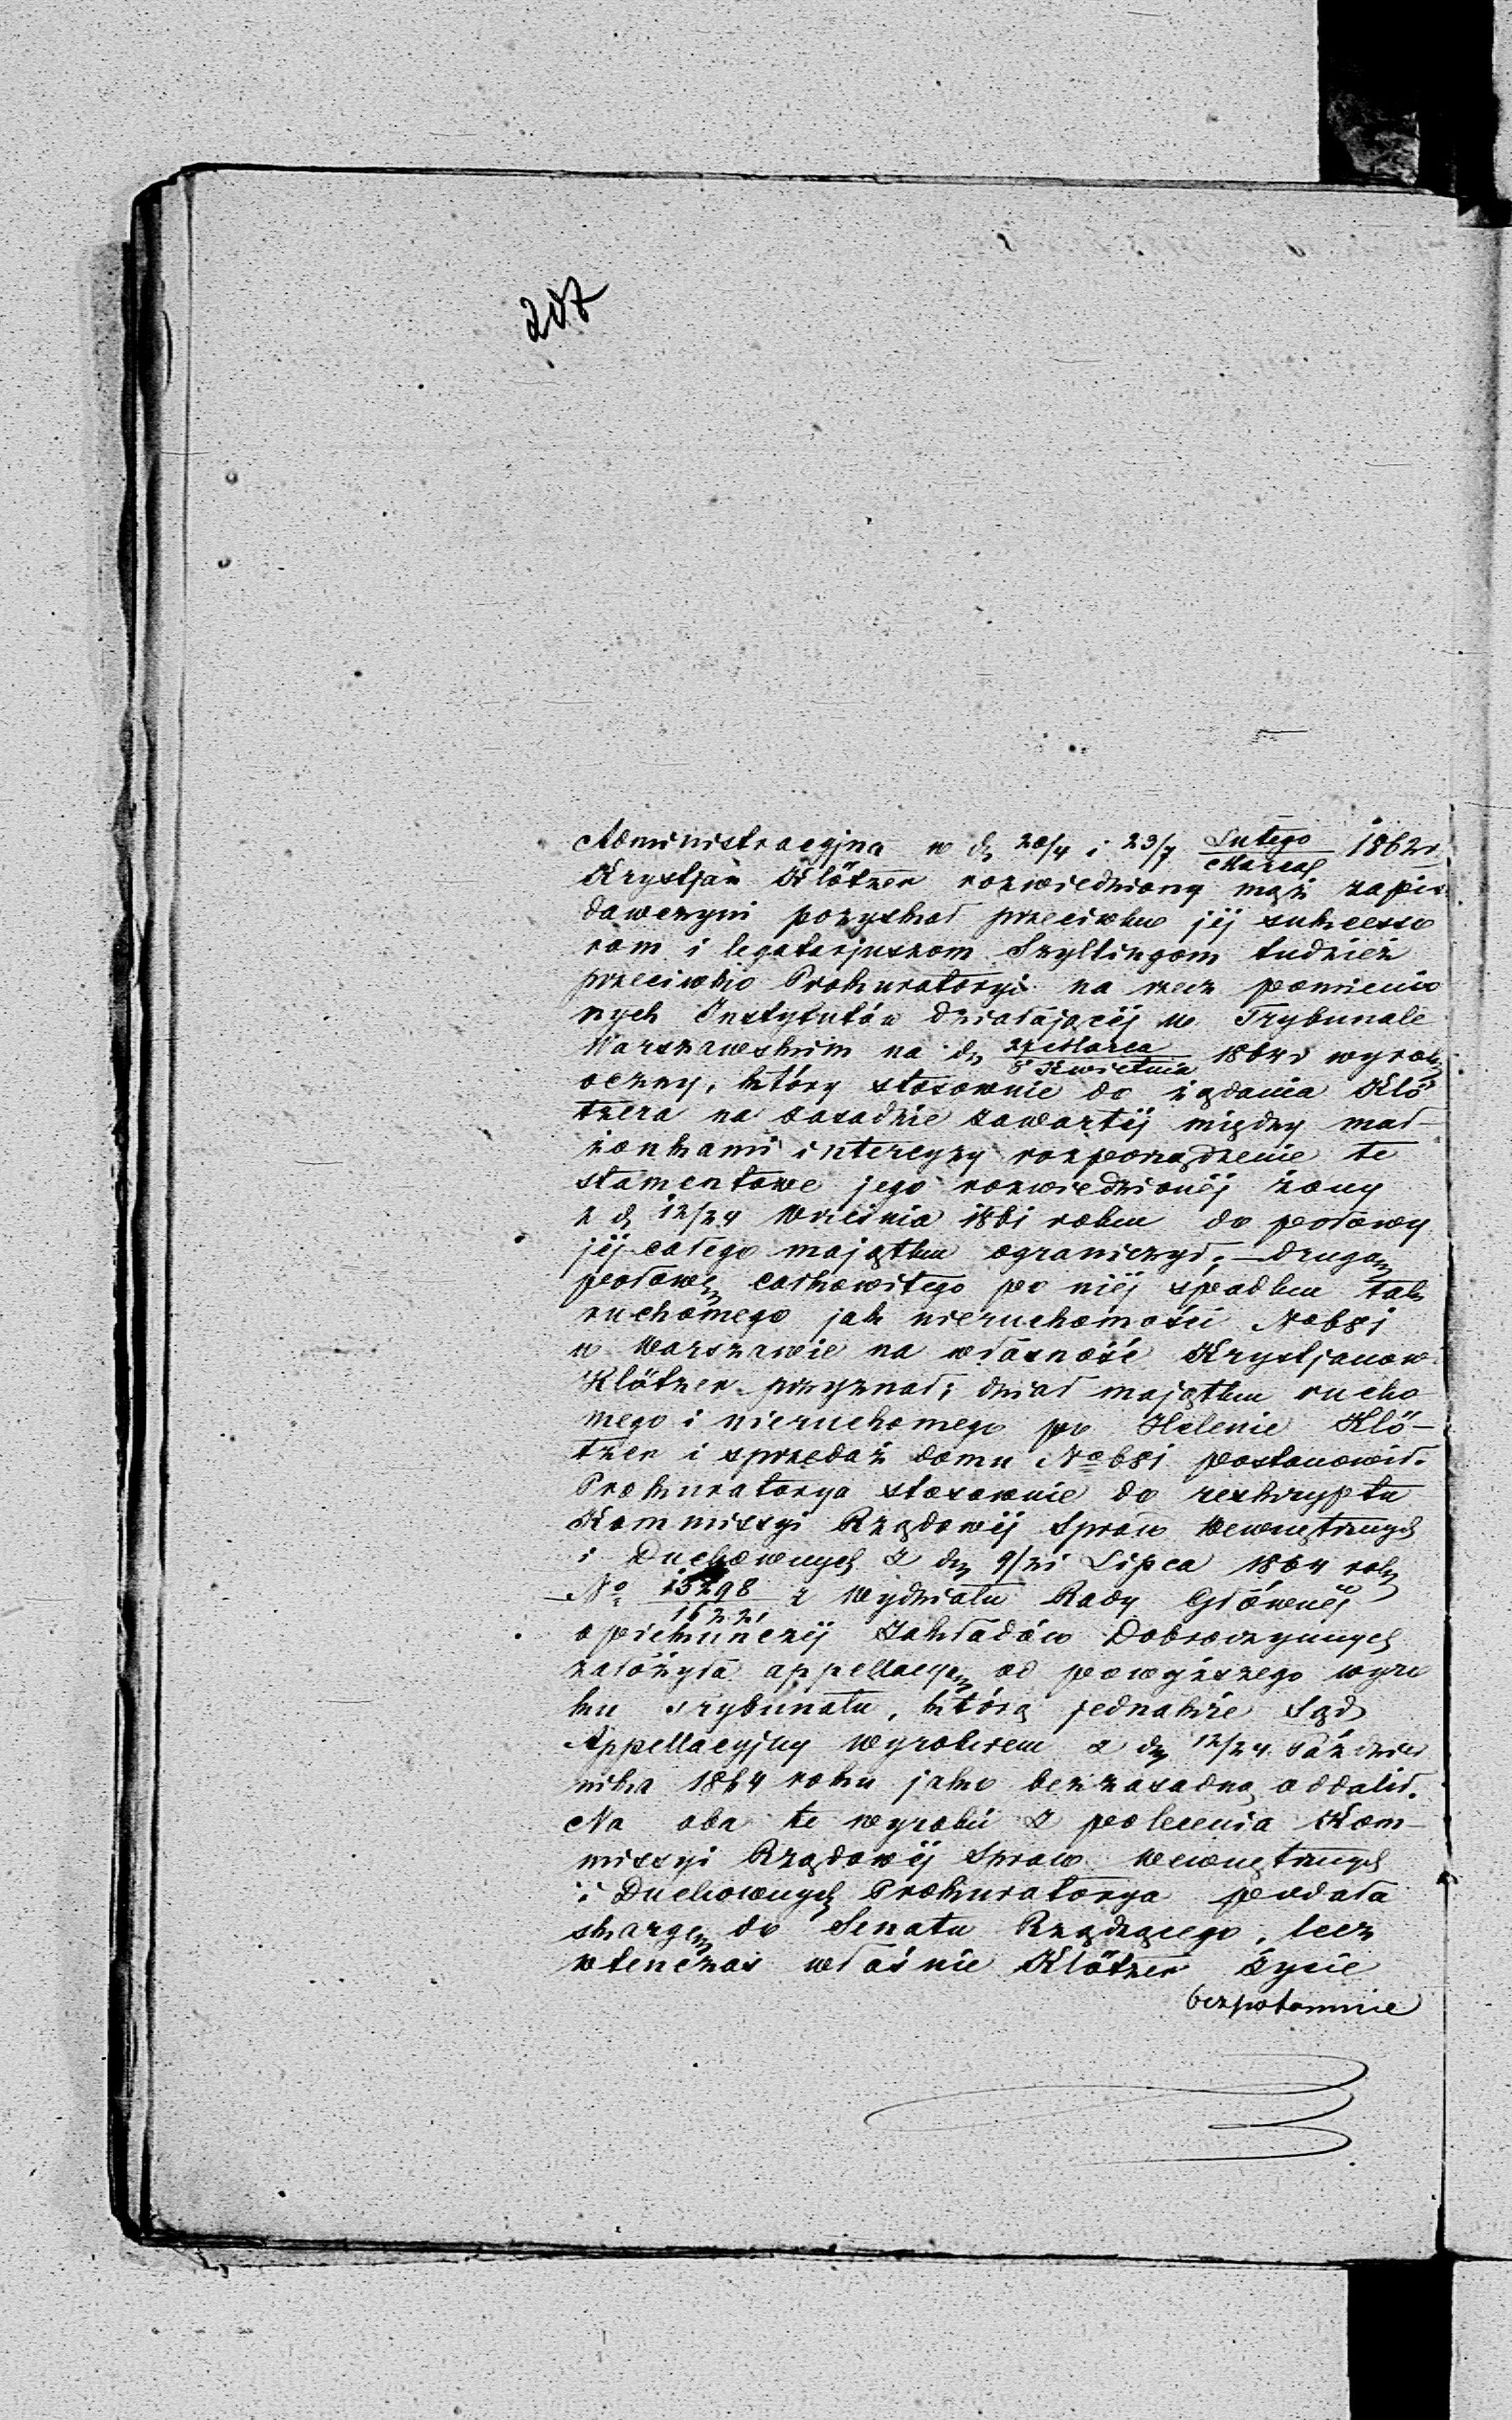 207
Administracyjna w d. 20/4 i 23/7 Lutego/Marca 1862 r
Krystjan Klötzer rozwiedziony mąż zapiso
dawczyni pozyskał przeciwko jéj sukcesso
rom i legatarjuszom Szyllingom tudzież
przeciwko Prokuratoryi na rzecz pomienio
nych Instytutów działającéj w Trybunale
Warszawskim na d. 27 Marca/8 Kwietnia 1864 r wyrok
oczny, który stosownie do żądania Klö
tzera na zasadzie zawartéj między mał-
żonkami intercyzy rozporządzenie te
stamentowe jego rozwiedzionéj żony
z d. 12/24 Września 1861 roku do połowy
jéj całego majątku ograniczył; – drugą
połowę całkowitego po niéj spadku tak
ruchomego jak nieruchomości No 681
w Warszawie na własność Krystjanow
Klötzer przyznał; dział majątku rucho
mego i nieruchomego po Helenie Klö-
tzer i sprzedaż domu No 681 postanowił.
Prokuratorya stosownie do reskryptu
Kommissyi Rządowéj Spraw Wewnętrznych
i Duchownych z dn 9/21 Lipca 1864 roku
No 15298/16221 z Wydziału Rady Głównéj
opiekuńczéj Zakładów Dobroczynnych
założyła appellacyę od powyższego wyro
ku Trybunału, którą jednakże Sąd
Appellacyjny wyrokiem z dn 12/24 Paździer
nika 1864 roku jako bezzasadną oddalił.
Na oba te wyroki z polecenia Kom-
missyi Rządowéj Spraw Wewnętrznych
i Duchownych Prokuratorya podała
skargę do Senatu Rządzącego, lecz
wtenczas właśnie Klötzer życie
bezpotomnie